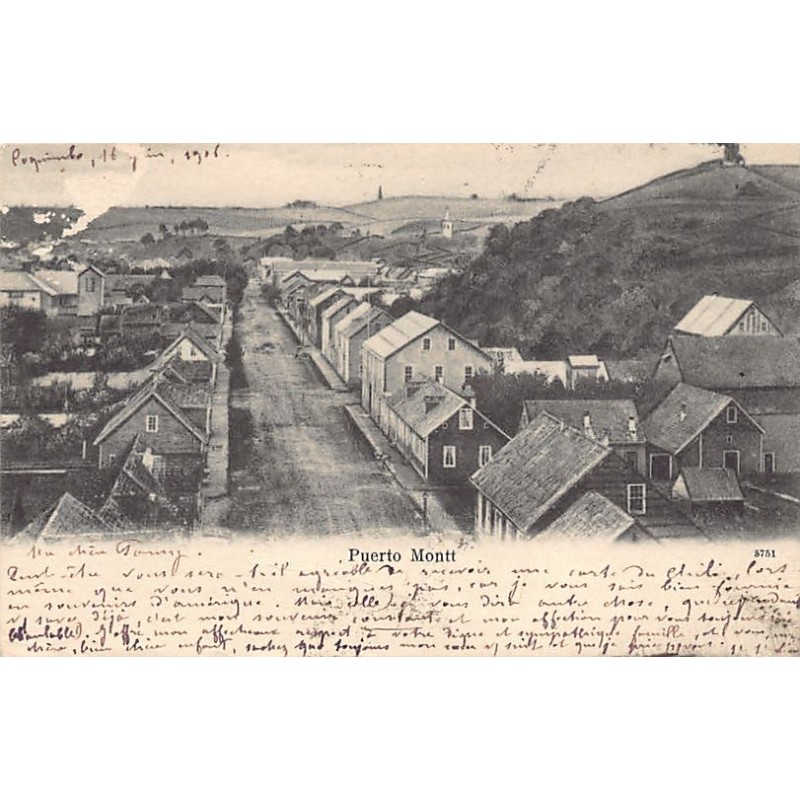 Coquimbo, 16 juin, 1906.
Ma chère Fanny.
Puerto Montt
5751
Peut-être vous sera-t-il agréable de recevoir une carte du Chili, lors
même que vous n'en manquez pas, car je vous sais bien fournie
en souvenirs d'amérique. Mais elle vous dira autre chose, que
vous savez déjà, c'est mon souvenir constant et mon affection pour vous toujours
J'offre mon affectueux respect à votre digne et sympathique famille, et vous, ma
chère, bien chère enfant, sachez que toujours mon cœur y suit et que je prie pr vous.